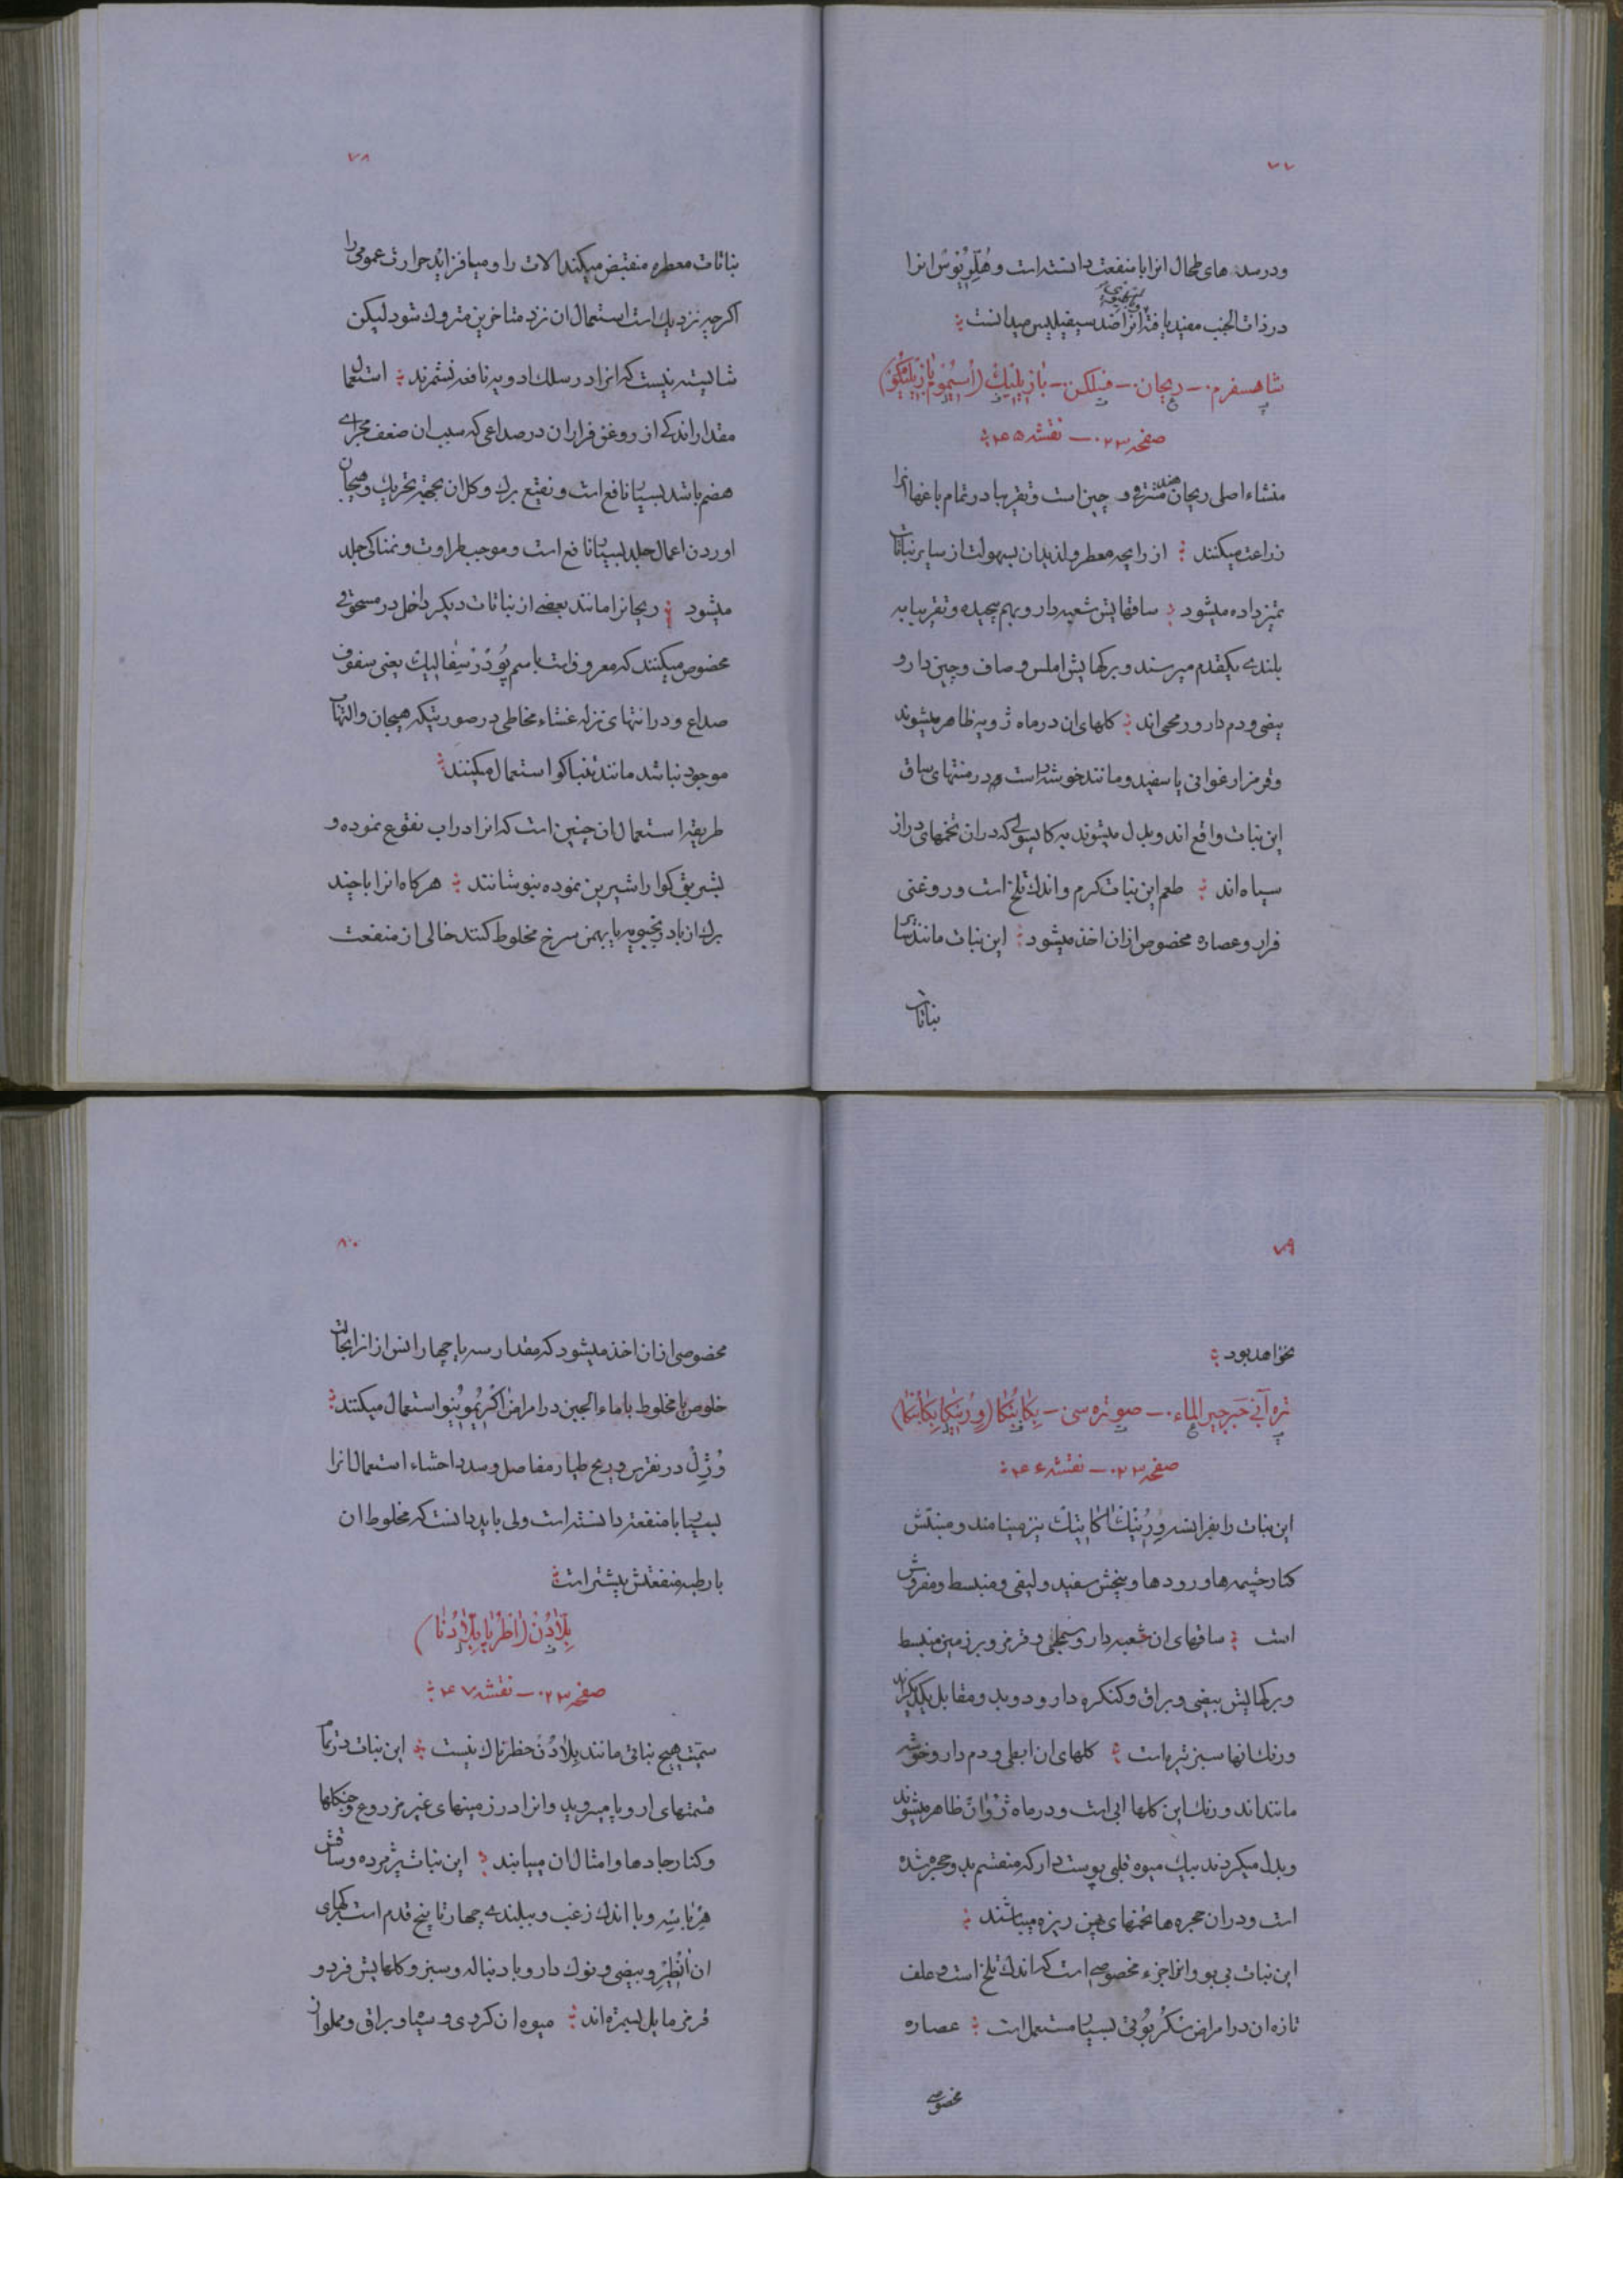 ۷۷
و در سده های طحال انرا با منفعت دانسته است و هُلِّرِیُوسْ انرا
در ذات الجنب مفید یافته انرا ضد سیفیلیس میدانست
شاهسفرم — ریحان — فسلکن — بَازِیلِیكْ (اُسِیُمُو بَازِیلِیکُنْ)
صفحه ۲۳ — نقشه ۴۵
منشاء اصلی ریحان هند مشرقی و چین است و تقریبا در تمام باغها انرا
زراعت میکنند از رایحه معطر و لذیذان بسهولت از سایر نباتات
تمیز داده میشود ساقهایش شعبه دار و بهم پیچیده و تقریبا به
بلندی یکقدم میرسند و برکهایش املس و صاف و چین دار و
بیضی و دم دار و رمحی اند کلهای ان در ماه ژویه ظاهر میشوند
و قرمز ارغوانی یا سفید و مانند خوشه است و در منتهای ساق
این نبات واقع اند و بدل میشوند به کاپسولی که دران تخمهای دراز
سیاه اند طعم این نبات کرم و اندك تلخ است و روغنی
فرار و عصاره مخصوص ازان اخذ میشود این نبات مانند سایر
نباتات
۷۸
نباتات معطره منقبض میکند الات را و میافزاید حرارت عمومی را
اکر چه نزدیك است استعمال ان نزد متاخرین متروك شود لیکن
شایسته نیست که انرا در سلك ادویه نافعه نشمرند استعمال
مقدار اندکی از روغن فرار ان در صداعی که سبب ان ضعف مجرای
هضم باشد بسیار نافع است و نقیع برك و کل ان بجهة تحریك و هیجان
اوردن اعمال جلد بسیار نافع است و موجب طراوت و نمناکی جلد
میشود ریحانرا مانند بعضی از نباتات دیکر داخل در مسحوقی
مخصوص میکنند که معروف است باسم پُودْرْ سِفَالِیكْ یعنی سفوف
صداع و در انتهای نزله غشاء مخاطی در صورتیکه هیجان و التهاب
موجود نباشد مانند تنباکو استعمال میکنند
طریقه استعمال ان چنین است که انرا در اب نقوع نموده و
بشربتی کوارا شیرین نموده بنوشانند هرکاه انرا با چند
برك از بادرنجبویه یا بهمن سرخ مخلوط کنند خالی از منفعت
۷۹
نخواهد بود
تره آبی جرجیر الماء — صو تره سی — بِکَابُنْکَا (وِرُنِیکَا بِکَابُنْکَا)
صفحه ۲۳ — نقشه ۴۶
این نبات را بفرانسه وِرُنِیكْ آکَاتِیكْ نیز مینامند و منبتش
کنار چشمه ها و رودها و بیخش سفید و لیفی و منبسط و مفروش
است ساقهای ان شعبه دار و سطبلی و قرمز و بر زمین منبسط
و برکهایش بیضی و براق و کنکره دار و دو بدو مقابل یکدیکراند
و رنك انها سبز تیره است کلهای ان ابطی و دم دار و خوشه
مانند اند و رنك این کلها ابی است و در ماه ژُوانْ ظاهر میشوند
و بدل میکردند بیك میوه قلبی پوست دار که منقسم بدو حجره شده
است و دران حجره ها تخمهای پهن ریزه میباشند
این نبات بی بو و انرا جزء مخصوصی است که اندك تلخ است و علف
تازه ان در امراض سْکُرْبُوتی بسیار مستعمل است عصاره
مخصوصی
۸۰
مخصوصی ازان اخذ میشود که مقدار سه یا چهار انس از انرا بحالت
خلوص یا مخلوط با ماء الجبن در امراض اسکربوتی نیز استعمال میکنند
وُژِلْ در نقرس و ریح طیار مفاصل و سدد احشاء استعمال انرا
بسیار با منفعت دانسته است ولی باید دانست که مخلوط ان
با رطبه منفعتش بیشتر است
بِلَّادُنْ (اَطْرُپَا بِلَّادُنَا)
صفحه ۲۳ — نقشه ۴۷
سمیّت هیچ نباتی مانند بِلَّادُنْ خطرناك نیست این نبات در تمام
قسمتهای اروپا میروید و انرا در زمینهای غیر مزروع و جنکلها
و کنار جاده ها و امثال ان مییابند این نبات پژمرده و ساقش
هِرْبَاسِهْ و با اندك زغب و ببلندی چهار تا پنج قدم است برکهای
ان اَنْطِیْرْ و بیضی و نوك دار و با دنباله و سبز و کلهایش فرد و
قرمز مایل بتیره اند میوه ان کروی و سیاه و براق و مملو از